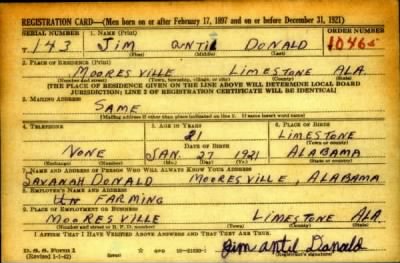 REGISTRATION CARD—(Men born on or after February 17, 1897 and on or before December 31, 1921)
SERIAL NUMBER 1. NAME (Print) ORDER NUMBER
T 143 JIM ANTIL DONALD 10465
(First) (Middle) (Last)
2. PLACE OF RESIDENCE (Print)
MOORESVILLE LIMESTONE ALA.
(Number and street) (Town, township, village, or city) (County) (State)
[THE PLACE OF RESIDENCE GIVEN ON THE LINE ABOVE WILL DETERMINE LOCAL BOARD
JURISDICTION; LINE 2 OF REGISTRATION CERTIFICATE WILL BE IDENTICAL]
3. MAILING ADDRESS
SAME
[Mailing address if other than place indicated on line 2. If same insert word same]
4. TELEPHONE 5. AGE IN YEARS 6. PLACE OF BIRTH
21 LIMESTONE
DATE OF BIRTH (Town or county)
NONE JAN. 27 1921 ALABAMA
(Exchange) (Number) (Mo.) (Day) (Yr.) (State or country)
7. NAME AND ADDRESS OF PERSON WHO WILL ALWAYS KNOW YOUR ADDRESS
SAVANAH DONALD MOORESVILLE ALABAMA
8. EMPLOYER'S NAME AND ADDRESS
FARMING
9. PLACE OF EMPLOYMENT OR BUSINESS
MOORESVILLE LIMESTONE ALA.
(Number and street or R. F. D. number) (Town) (County) (State)
I AFFIRM THAT I HAVE VERIFIED ABOVE ANSWERS AND THAT THEY ARE TRUE.
D. S. S. Form 1 GPO jim antil Donald
(Revised 1-1-42) (Registrant's signature)